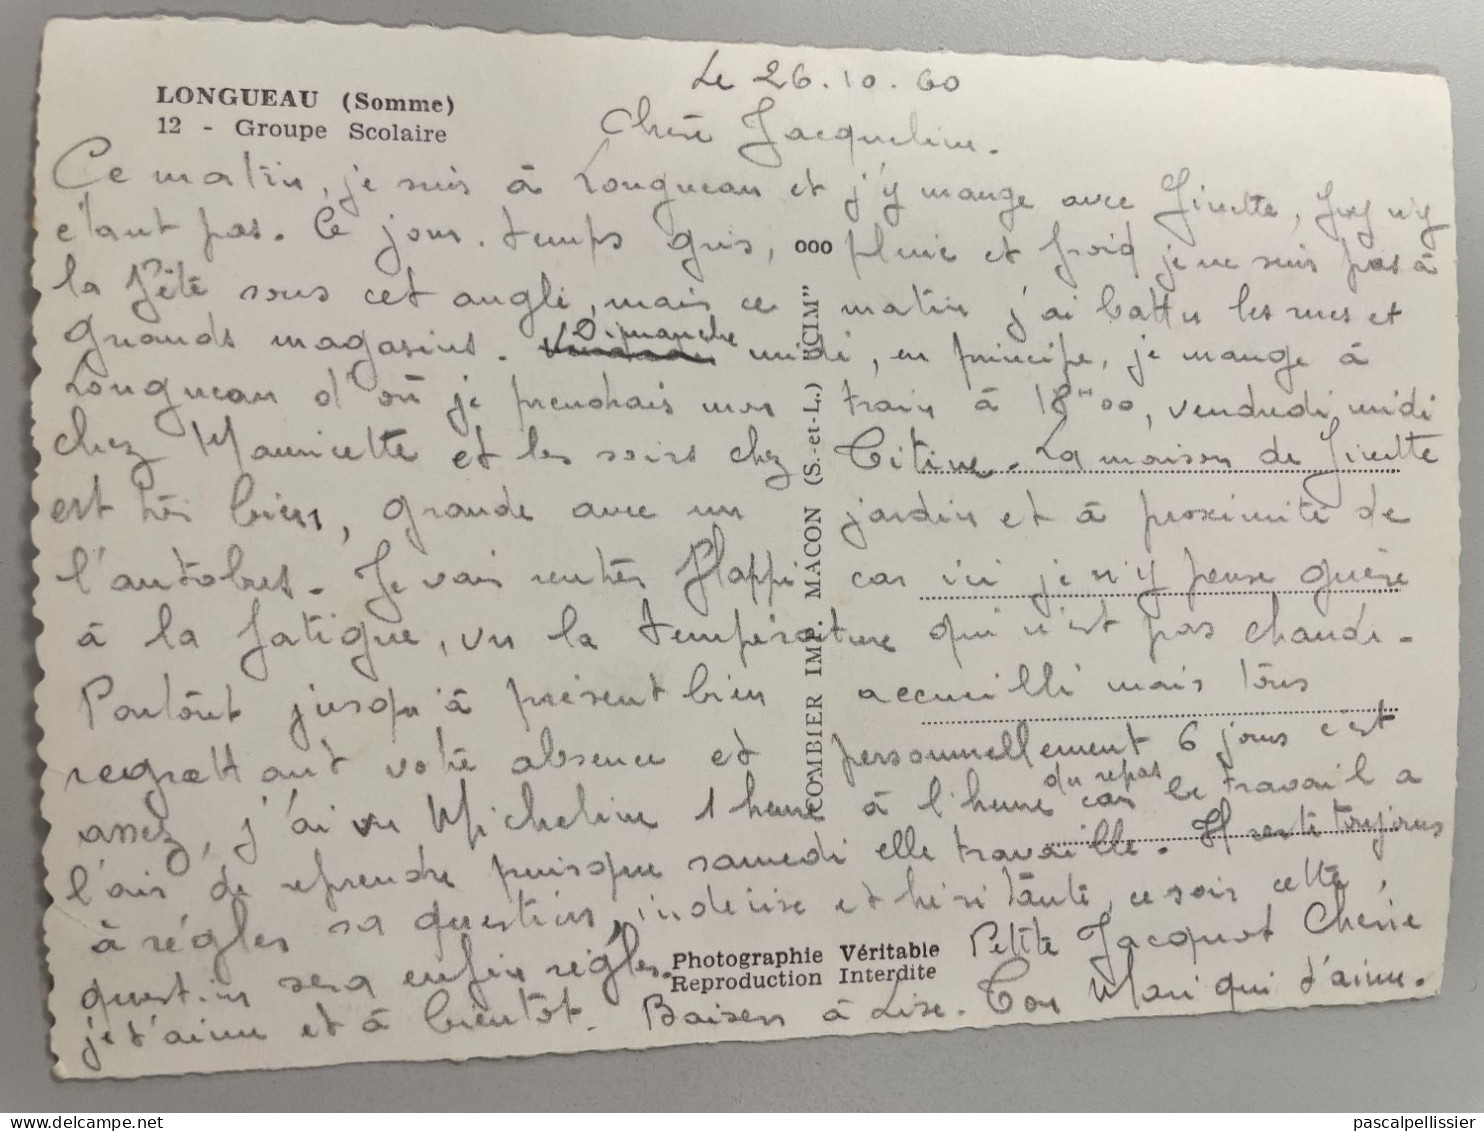 LONGUEAU (Somme)
12 - Groupe Scolaire
Le 26.10.60
Chère Jacqueline.
Ce matin, je suis à Longueau et j'y mange avec Ginette, Guy n'y
étant pas. Ce jour, temps gris, pluie et froid je ne suis pas à
la fête sous cet angle, mais ce matin j'ai battu les rues et
grands magasins. Dimanche midi, en principe, je mange à
Longueau d'où je prendrais mon train à 18H00, vendredi midi
chez Mauricette et les soirs chez Titine. La maison de Ginette
est très bien, grande avec un jardin et à proximité de
l'autobus. Je vais rentrer flappi car ici je n'y pense guère
à la fatigue, vu la température qui n'est pas chaude.
Partout jusqu'à présent bien accueilli mais tous
regrettant votre absence et personnellement 6 jours c'est
assez, j'ai vu Micheline 1 heure à l'heure du repas car le travail a
l'air de reprendre puisque samedi elle travaille. Il reste toujours
à régler sa question, indécise et hésitante, ce soir cette
question sera enfin réglée. Petite Jacquot Chérie
je t'aime et à bientôt. Baisers à Lise. Ton Mari qui t'aime.
ooo
COMBIER IMP. MACON (S.-et-L.) "CIM"
Photographie Véritable
Reproduction Interdite
pascalpellissier